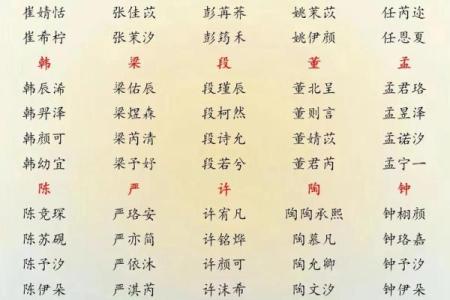 崔婧恬 张佳苡 彭苒荞 姚茉苡 任芮迩
崔希柠 张茉汐 彭筠禾 姚伊颜 任恩夏
韩 梁 段 董 孟
韩辰浠 梁佑辰 段瑾辰 董北呈 孟君珞
韩羿泽 梁煜森 段柯然 董则言 孟昱泽
韩颜可 梁芮清 段诗允 董婧苡 孟诺汐
韩幼宜 梁予妤 段若兮 董君芮 孟宁一
陈 严 许 陶 钟
陈竞琛 严珞安 许宥凡 陶陶承熙 钟栩颜
陈苏砚 严亦简 许铭烨 陶慕凡 钟珞嘉
陈予汐 严依沐 许颜可 陶允卿 钟予汐
陈伊朵 严淇芮 许沫希 陶文汐 钟希朵